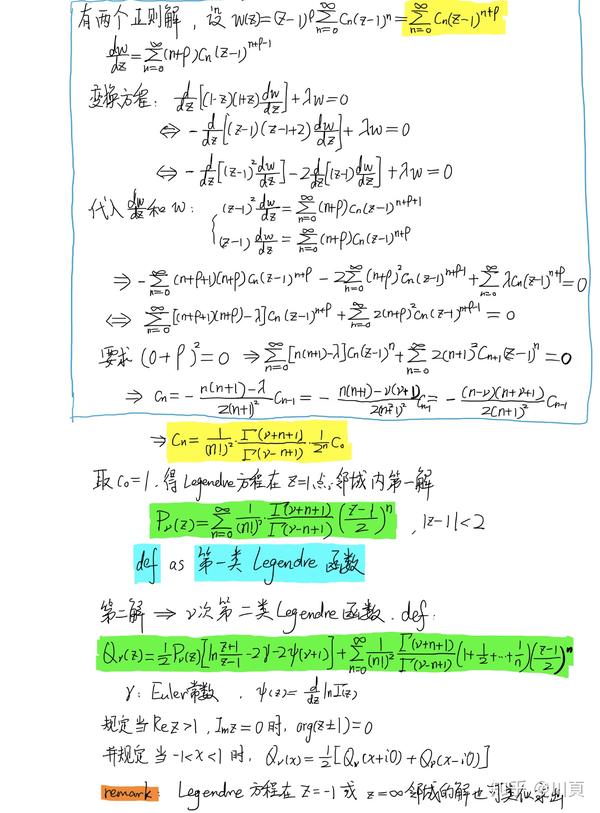 有两个正则解，设 w(z)=(z-1)^ρ ∑_{n=0}^∞ Cn(z-1)^n = ∑_{n=0}^∞ Cn(z-1)^{n+ρ}
dw/dz = ∑_{n=0}^∞ (n+ρ)Cn(z-1)^{n+ρ-1}
变换方程: d/dz[(1-z)(1+z)dw/dz]+λw=0
⇔ -d/dz[(z-1)(z-1+2)dw/dz]+λw=0
⇔ -d/dz[(z-1)^2 dw/dz]-2d/dz[(z-1)dw/dz]+λw=0
代入 dw/dz 和 w: { (z-1)^2 dw/dz = ∑_{n=0}^∞ (n+ρ)Cn(z-1)^{n+ρ+1}
(z-1) dw/dz = ∑_{n=0}^∞ (n+ρ)Cn(z-1)^{n+ρ}
⇒ -∑_{n=0}^∞ (n+ρ+1)(n+ρ)Cn(z-1)^{n+ρ} - 2∑_{n=0}^∞ (n+ρ)^2 Cn(z-1)^{n+ρ-1} + ∑_{n=0}^∞ λCn(z-1)^{n+ρ} = 0
⇔ ∑_{n=0}^∞ [(n+ρ+1)(n+ρ)-λ]Cn(z-1)^{n+ρ} + ∑_{n=0}^∞ 2(n+ρ)^2 Cn(z-1)^{n+ρ-1} = 0
要求 (0+ρ)^2=0 ⇒ ∑_{n=0}^∞ [n(n+1)-λ]Cn(z-1)^n + ∑_{n=0}^∞ 2(n+1)^2 C_{n+1}(z-1)^n = 0
⇒ Cn = -(n(n+1)-λ)/(2(n+1)^2) C_{n-1} = -(n(n+1)-ν(ν+1))/(2(n+1)^2) C_{n-1} = -((n-ν)(n+ν+1))/(2(n+1)^2) C_{n-1}
⇒ Cn = 1/(n!)^2 · Γ(ν+n+1)/Γ(ν-n+1) · 1/2^n C0
取 C0=1, 得 Legendre 方程在 z=1 点邻域内第一解
Pν(z) = ∑_{n=0}^∞ 1/(n!)^2 · Γ(ν+n+1)/Γ(ν-n+1) ((z-1)/2)^n , |z-1|<2
def as 第一类 Legendre 函数
第二解 ⇒ ν次第二类 Legendre 函数. def:
Qν(z) = 1/2 Pν(z)[ln (z+1)/(z-1) -2γ-2ψ(ν+1)] + ∑_{n=0}^∞ 1/(n!)^2 Γ(ν+n+1)/Γ(ν-n+1) (1+1/2+…+1/n)((z-1)/2)^n
γ: Euler常数 , ψ(z) = d/dz lnΓ(z)
规定当 Re z>1 , Im z=0 时, arg(z±1)=0
并规定当 -1<x<1 时, Qν(x) = 1/2[Qν(x+i0)+Qν(x-i0)]
remark: Legendre 方程在 z=-1 或 z=∞ 邻域的解也可类似求出
知乎 @川頁